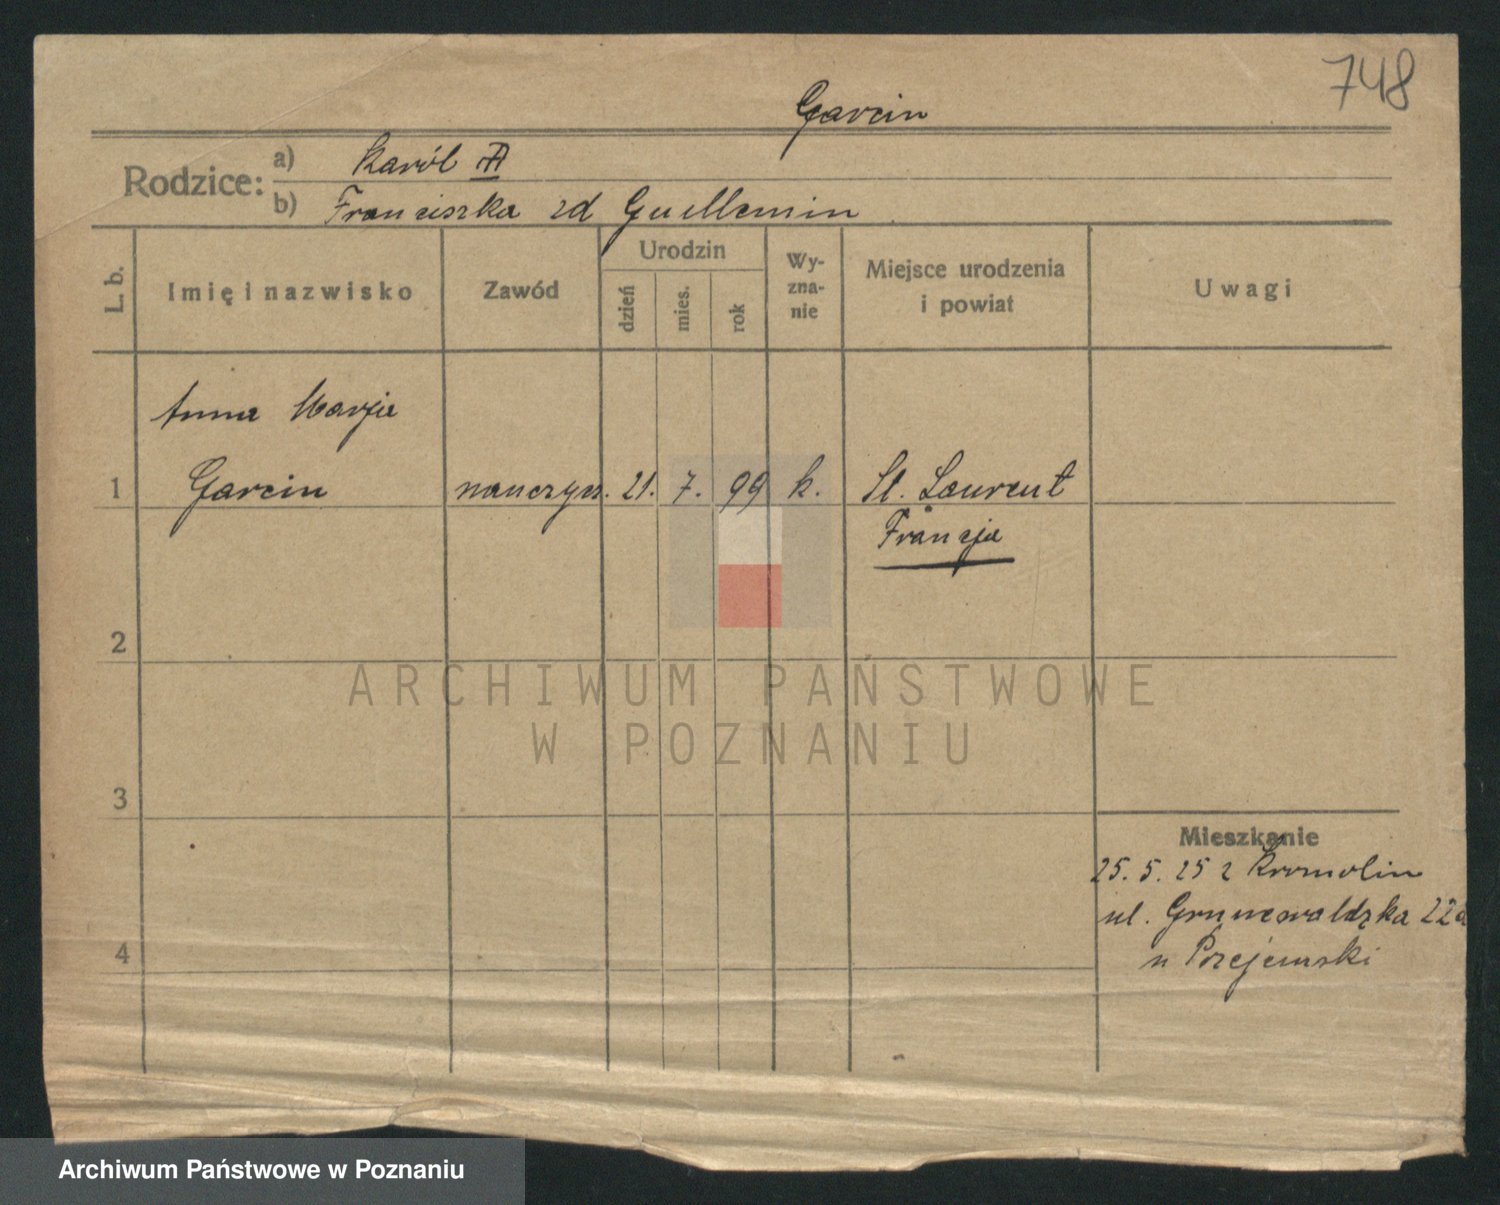 748
Garcin
Rodzice:
a) Karól
b) Franciszka zd Guillemin
L. b.
Imię i nazwisko
Zawód
Urodzin
dzień
mies.
rok
Wy-
zna-
nie
Miejsce urodzenia
i powiat
Uwagi
Anna Marja
1 Garcin nauczyc. 21. 7. 99 k. St. Laurent
Francja
2
ARCHIWUM PAŃSTWOWE
W POZNANIU
3
Mieszkanie
25. 5. 25 z Kromolin
ul. Grunwaldzka 22a
4
Archiwum Państwowe w Poznaniu